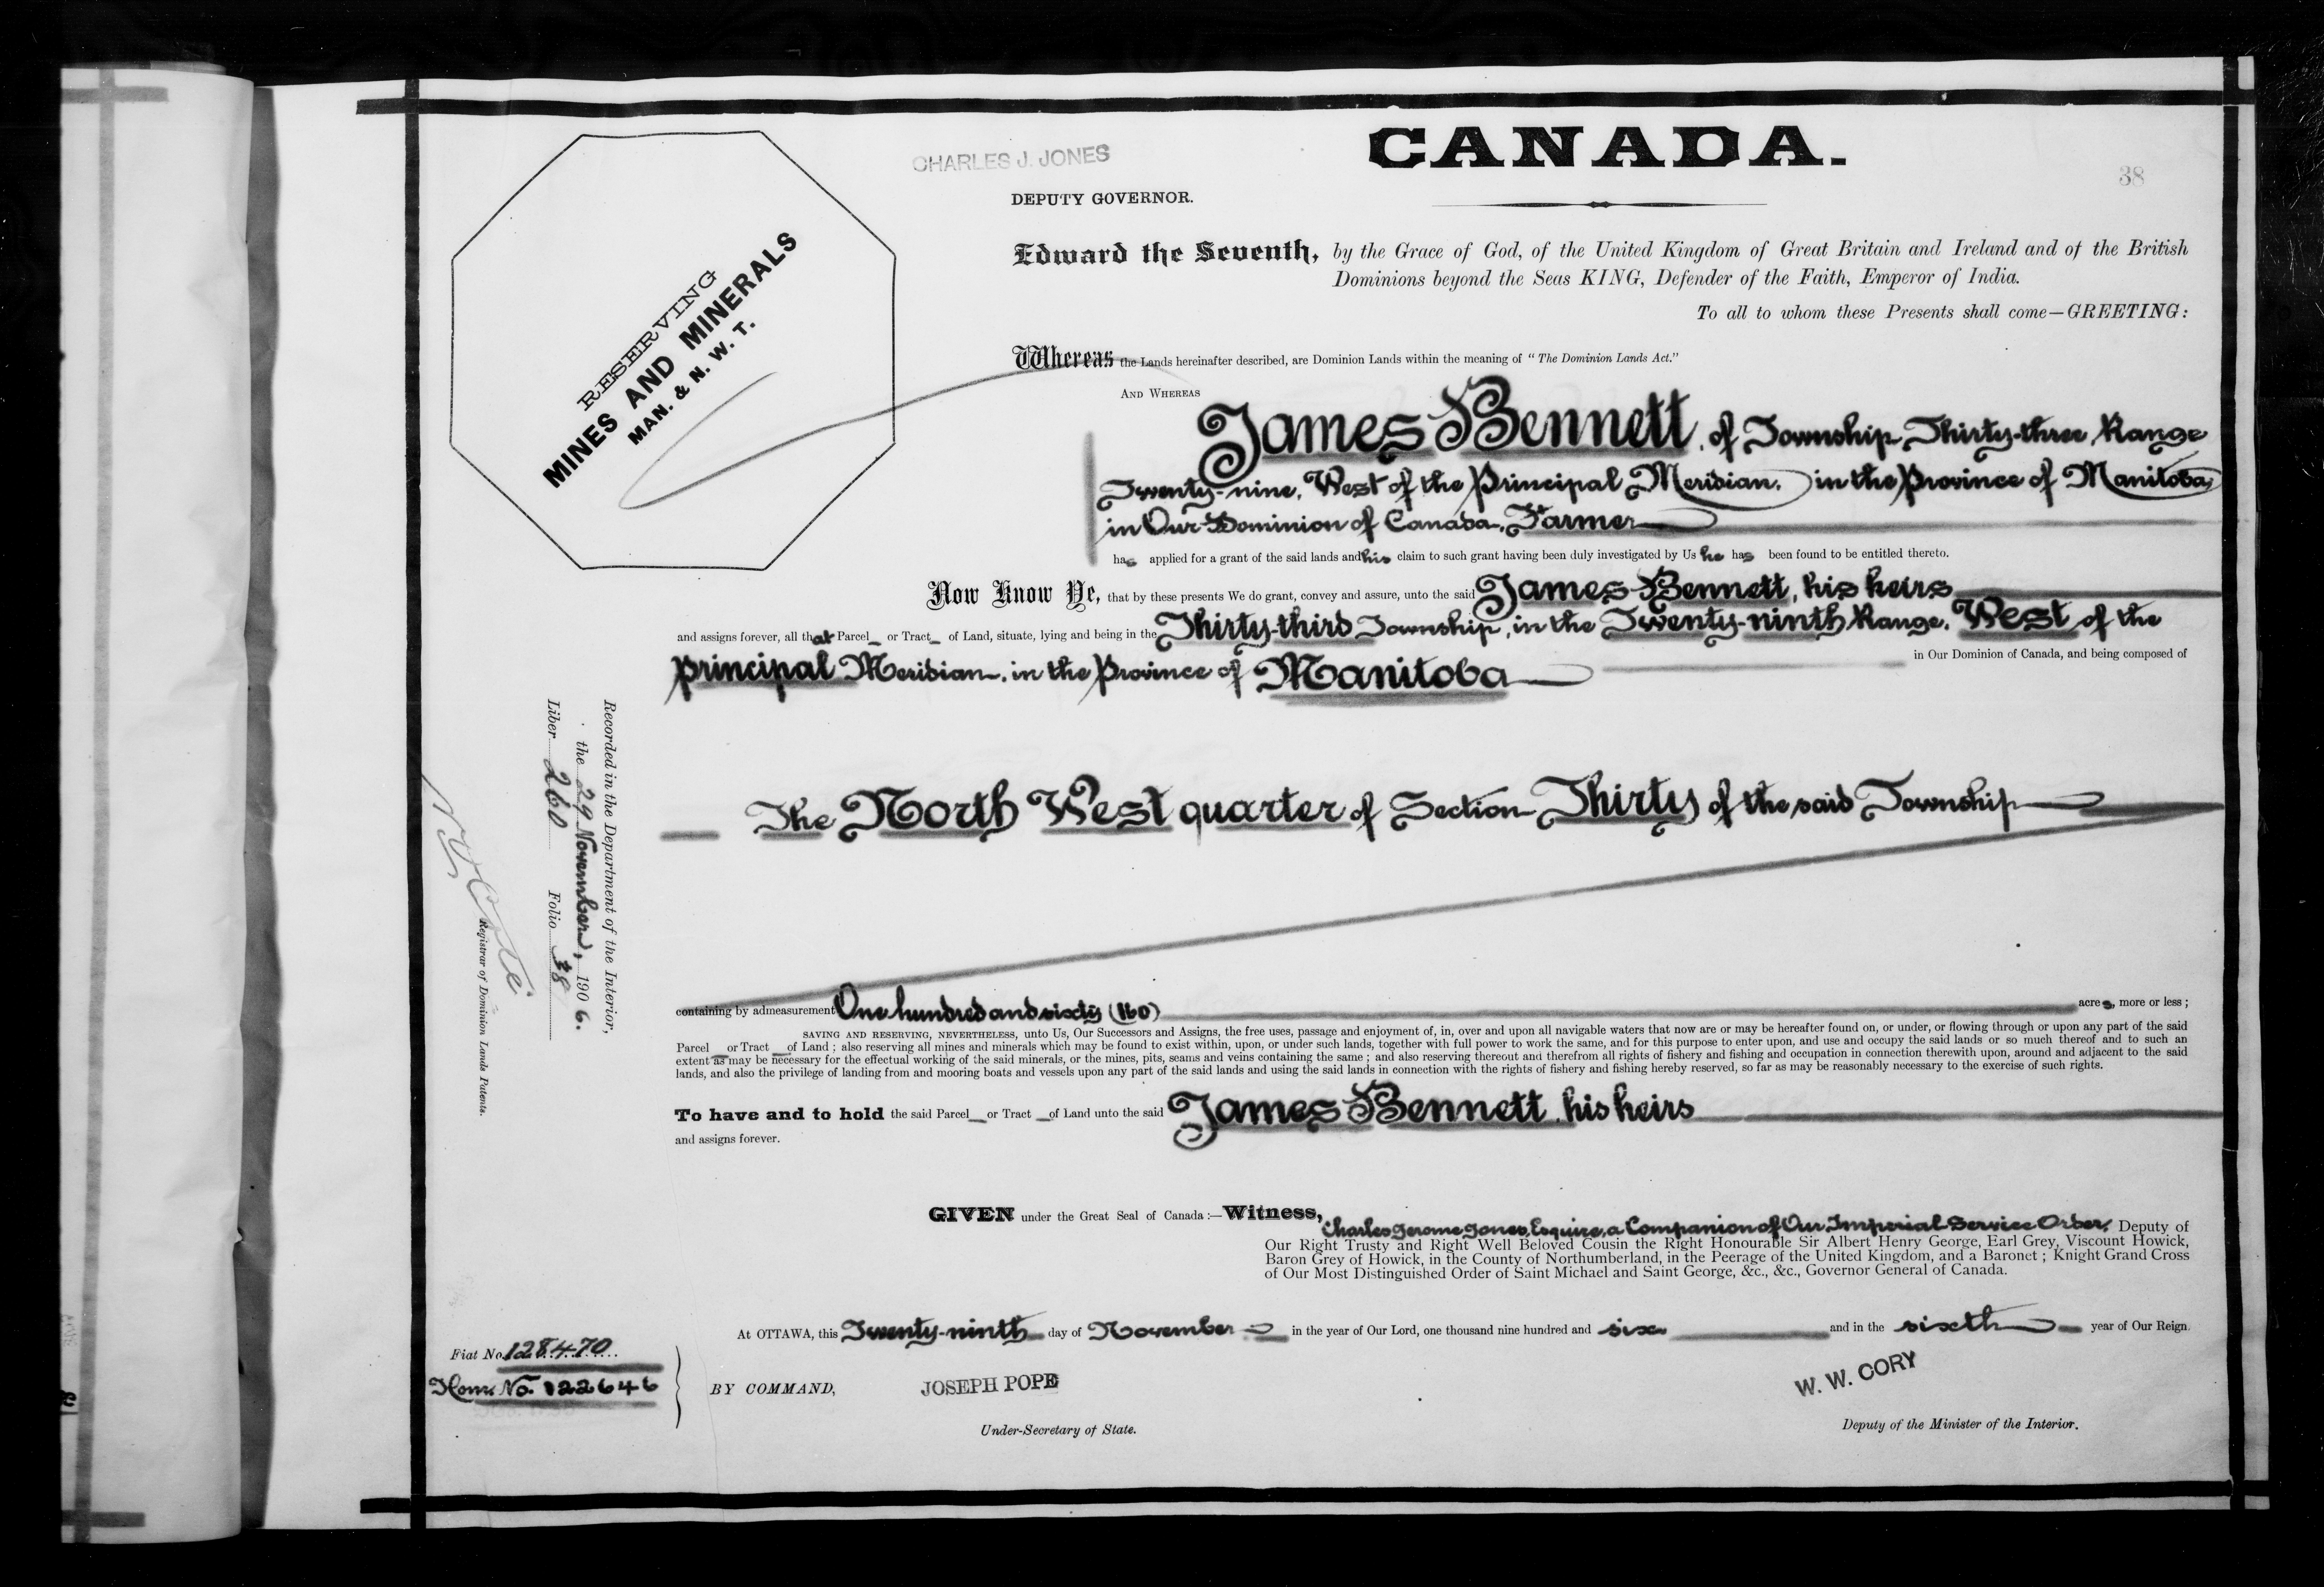 CANADA.
38
CHARLES J. JONES
DEPUTY GOVERNOR.
RESERVING
MINES AND MINERALS
MAN. & N. W. T.
Edward the Seventh, by the Grace of God, of the United Kingdom of Great Britain and Ireland and of the British
Dominions beyond the Seas KING, Defender of the Faith, Emperor of India.
To all to whom these Presents shall come—GREETING:
Whereas the Lands hereinafter described, are Dominion Lands within the meaning of "The Dominion Lands Act."
AND WHEREAS
James Bennett, of Township Thirty-three, Range
Twenty-nine, West of the Principal Meridian, in the Province of Manitoba,
in Our Dominion of Canada, Farmer
has applied for a grant of the said lands and his claim to such grant having been duly investigated by Us he has been found to be entitled thereto.
Now Know Ye, that by these presents We do grant, convey and assure, unto the said James Bennett, his heirs
and assigns forever, all that Parcel or Tract of Land, situate, lying and being in the Thirty-third Township, in the Twenty-ninth Range, West of the
Principal Meridian, in the Province of Manitoba in Our Dominion of Canada, and being composed of
The North West quarter of Section Thirty of the said Township
Recorded in the Department of the Interior,
the 29 November, 1906.
Liber 260 Folio 38
Registrar of Dominion Lands Patents.
containing by admeasurement One hundred and sixty (160) acres, more or less ;
SAVING AND RESERVING, NEVERTHELESS, unto Us, Our Successors and Assigns, the free uses, passage and enjoyment of, in, over and upon all navigable waters that now are or may be hereafter found on, or under, or flowing through or upon any part of the said
Parcel or Tract of Land ; also reserving all mines and minerals which may be found to exist within, upon, or under such lands, together with full power to work the same, and for this purpose to enter upon, and use and occupy the said lands or so much thereof and to such an
extent as may be necessary for the effectual working of the said minerals, or the mines, pits, seams and veins containing the same ; and also reserving thereout and therefrom all rights of fishery and fishing and occupation in connection therewith upon, around and adjacent to the said
lands, and also the privilege of landing from and mooring boats and vessels upon any part of the said lands and using the said lands in connection with the rights of fishery and fishing hereby reserved, so far as may be reasonably necessary to the exercise of such rights.
To have and to hold the said Parcel or Tract of Land unto the said James Bennett, his heirs
and assigns forever.
GIVEN under the Great Seal of Canada :—Witness,
Charles Jerome Jones, Esquire, a Companion of Our Imperial Service Order, Deputy of
Our Right Trusty and Right Well Beloved Cousin the Right Honourable Sir Albert Henry George, Earl Grey, Viscount Howick,
Baron Grey of Howick, in the County of Northumberland, in the Peerage of the United Kingdom, and a Baronet ; Knight Grand Cross
of Our Most Distinguished Order of Saint Michael and Saint George, &c., &c., Governor General of Canada.
At OTTAWA, this Twenty-ninth day of November in the year of Our Lord, one thousand nine hundred and six and in the sixth year of Our Reign.
Fiat No. 128470
Hom. No. 122646
BY COMMAND,
JOSEPH POPE
Under-Secretary of State.
W. W. CORY
Deputy of the Minister of the Interior.